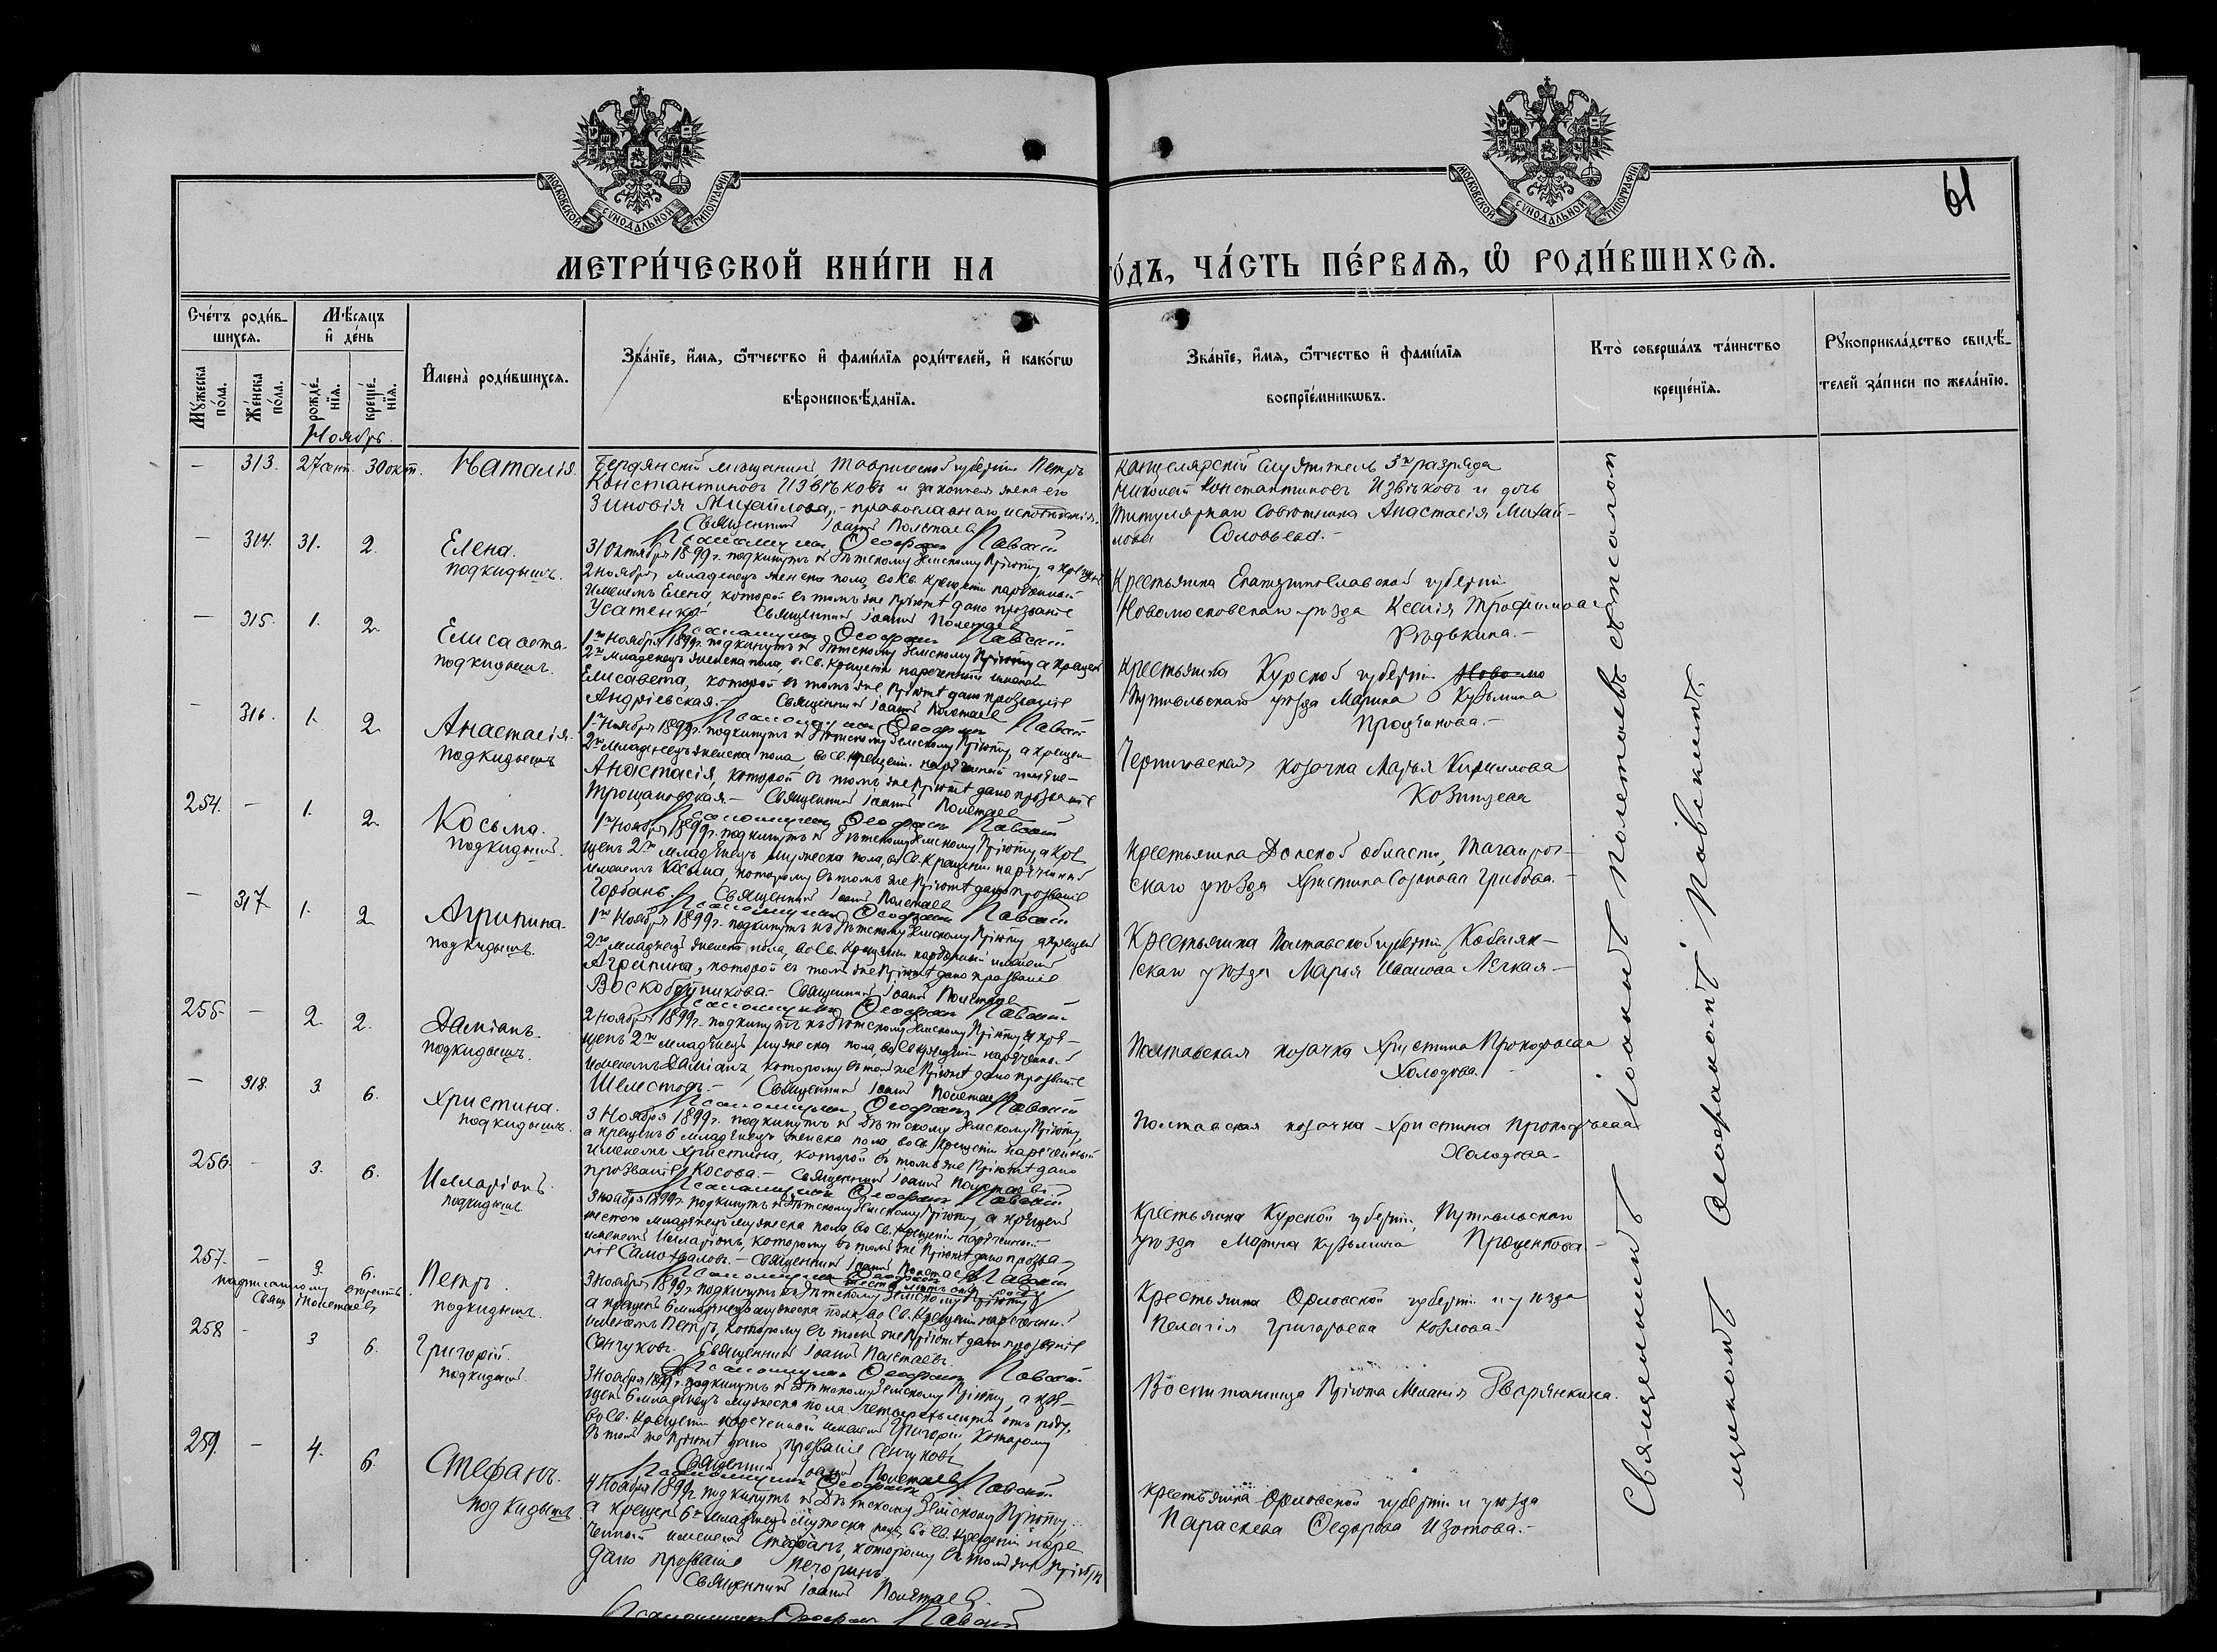 МОСКОВСКОЙ СѴНОДАЛЬНОЙ ТИПОГРАФІИ
МОСКОВСКОЙ СѴНОДАЛЬНОЙ ТИПОГРАФІИ
61
МЕТРИ́ЧЕСКОЙ КНИ́ГИ НА
ГО́ДЪ, ЧА́СТЬ ПЕ́РВАЯ, Ѡ҆ РОДИ́ВШИХСЯ.
Сче́тъ роди́в-
шихся.
Мꙋ́жеска по́ла.
Же́нска по́ла.
Мѣ́сяцъ
и҆ де́нь
рожде́-
нїя.
креще́-
нїя.
И҆мена̀ роди́вшихся.
Зва́нїе, и҆́мя, ѻ҆́тчество и҆ фами́лїя роди́телей, и҆ како́гѡ
вѣроисповѣ́данїя.
Зва́нїе, и҆́мя, ѻ҆́тчество и҆ фами́лїя
воспрїе́мникѡвъ.
Кто̀ соверша́лъ та́инство
креще́нїя.
Рꙋкоприкла́дство свидѣ́-
телей за́писи по жела́нїю.
Ноябрь.
— 313. 27 сент. 30 окт. Наталія.
Бердянскій мѣщанинъ, Таврической губерніи Петръ
Константиновъ Извѣковъ и законная жена его
Зиновія Михайлова, - православнаго исповѣданія.
Священникъ Іоаннъ Полетаевъ
Псаломщикъ Ѳеофанъ Павскій
Канцелярскій служитель 3го разряда
Николай Константиновъ Извѣковъ и дочь
Титулярнаго Совѣтника Анастасія Михай-
лова Соловьева.-
— 314. 31. 2. Елена.
подкидышъ.
31 Октября 1899 г. подкинутъ къ Дѣтскому Земскому Пріюту, а крещенъ
2 ноября младенецъ женска пола, во св. крещеніи нареченный
именемъ Елена, которой въ томъ же Пріютѣ дано прозваніе
Усатенко.- Священникъ Іоаннъ Полетаевъ
Псаломщикъ Ѳеофанъ Павскій
Крестьянка Екатеринославской губерніи
Новомосковскаго уѣзда Ксенія Трофимова
Рѣдькина.-
— 315. 1. 2. Елисавета.
подкидышъ.
1го Ноября 1899 г. подкинутъ къ Дѣтскому Земскому Пріюту, а крещенъ
2го младенецъ женска пола, во Св. Крещеніи нареченный именемъ
Елисавета, которой въ томъ же Пріютѣ дано прозваніе
Андріевская.- Священникъ Іоаннъ Полетаевъ
Псаломщикъ Ѳеофанъ Павскій
Крестьянка Курской губерніи
Путивльскаго уѣзда Марина Кузьмина
Проценкова.-
— 316. 1. 2. Анастасія.
подкидышъ
1го Ноября 1899 г. подкинутъ къ Дѣтскому Земскому Пріюту, а крещенъ
2го младенецъ женска пола, во Св. Крещеніи нареченный именемъ
Анастасія, которой въ томъ же Пріютѣ дано прозваніе
Трощановская.- Священникъ Іоаннъ Полетаевъ
Псаломщикъ Ѳеофанъ Павскій
Черниговская козачка Марья Кириллова
254. — 1. 2. Косьма.
подкидышъ.
1го Ноября 1899 г. подкинутъ къ Дѣтскому Земскому Пріюту, а кре-
щенъ 2го младенецъ мужеска пола, во Св. Крещеніи нареченный
именемъ Косьма, которому въ томъ же Пріютѣ дано прозваніе
Горбань. Священникъ Іоаннъ Полетаевъ
Псаломщикъ Ѳеофанъ Павскій
Крестьянка Донской области, Таганрог-
скаго уѣзда Христина Созонова Грибова.-
— 317. 1. 2. Агрипина.
подкидышъ.
1го Ноября 1899 г. подкинутъ къ Дѣтскому Земскому Пріюту, а крещенъ
2го младенецъ женска пола, во Св. Крещеніи нареченный именемъ
Агрипина, которой въ томъ же Пріютѣ дано прозваніе
Воскобойникова.- Священникъ Іоаннъ Полетаевъ
Псаломщикъ Ѳеофанъ Павскій
Крестьянка Полтавской губерніи, Кобеляк-
скаго уѣзда Марья Иванова Легкая.-
255. — 2. 2. Даміанъ.
подкидышъ.
2 Ноября 1899 г. подкинутъ къ Дѣтскому Земскому Пріюту, а кре-
щенъ 2го младенецъ мужеска пола, во Св. крещеніи нареченный
именемъ Даміанъ, которому въ томъ же Пріютѣ дано прозваніе
Шелестовъ.- Священникъ Іоаннъ Полетаевъ
Псаломщикъ Ѳеофанъ Павскій
Полтавская козачка Христина Прокофьева
Холодова.-
— 318. 3. 6. Христина.
подкидышъ.
3 Ноября 1899 г. подкинутъ къ Дѣтскому Земскому Пріюту,
а крещенъ 6 младенецъ женска пола во Св. Крещеніи нареченный
именемъ Христина, которой въ томъ же Пріютѣ дано
прозваніе Косова.- Священникъ Іоаннъ Полетаевъ.
Псаломщикъ Ѳеофанъ Павскій
Полтавская козачка Христина Прокофьева
Холодова.-
256. — 3. 6. Илларіонъ.
подкидышъ.
3 ноября 1899 г. подкинутъ къ Дѣтскому Земскому Пріюту, а крещенъ
шестого младенецъ мужеска пола во Св. Крещеніи нареченный
именемъ Илларіонъ, которому въ томъ же Пріютѣ дано прозва-
ніе Самохваловъ.- Священникъ Іоаннъ Полетаевъ
Псаломщикъ Ѳеофанъ Павскій
Крестьянка Курской губерніи, Путивльскаго
уѣзда Марина Кузьмина Проценкова.-
257. — 3. 6. Петръ.
подкидышъ.
надписанному вѣрить
Свящ. І Полетаевъ
шести лѣтъ отъ роду
3 Ноября 1899 г. подкинутъ къ Дѣтскому Земскому Пріюту
а крещенъ 6 младенецъ мужеска пола, во Св. Крещеніи нареченный
именемъ Петръ, которому въ томъ же Пріютѣ дано прозваніе
Сенчуковъ. Священникъ Іоаннъ Полетаевъ.
Псаломщикъ Ѳеофанъ Павскій
Крестьянка Орловской губерніи и уѣзда
Пелагія Григорьева Козлова.
258 — 3 6. Григорій.
подкидышъ.
3 Ноября 1899 г. подкинутъ къ Дѣтскому Земскому Пріюту, а кре-
щенъ 6 младенецъ мужеска пола четырехъ лѣтъ отъ роду,
во Св. Крещеніи нареченный именемъ Григорій, которому
въ томъ же Пріютѣ дано прозваніе Сенчуковъ
Священникъ Іоаннъ Полетаевъ
Псаломщикъ Ѳеофанъ Павскій
Воспитанница Пріюта Меланія Дворянкина.
259. — 4. 6. Стефанъ.
подкидышъ.
4 Ноября 1899 г. подкинутъ къ Дѣтскому Земскому Пріюту,
а крещенъ 6го младенецъ мужеска пола, во Св. крещеніи наре
ченный именемъ Стефанъ, которому въ томъ же Пріютѣ
дано прозваніе Печоринъ
Священникъ Іоаннъ Полетаевъ.
Псаломщикъ Ѳеофанъ Павскій
Крестьянка Орловской губерніи и уѣзда
Параскева Ѳедорова Изотова.-
Священникъ Іоаннъ Полетаевъ съ псалом
щикомъ Ѳеофаномъ Павскимъ.